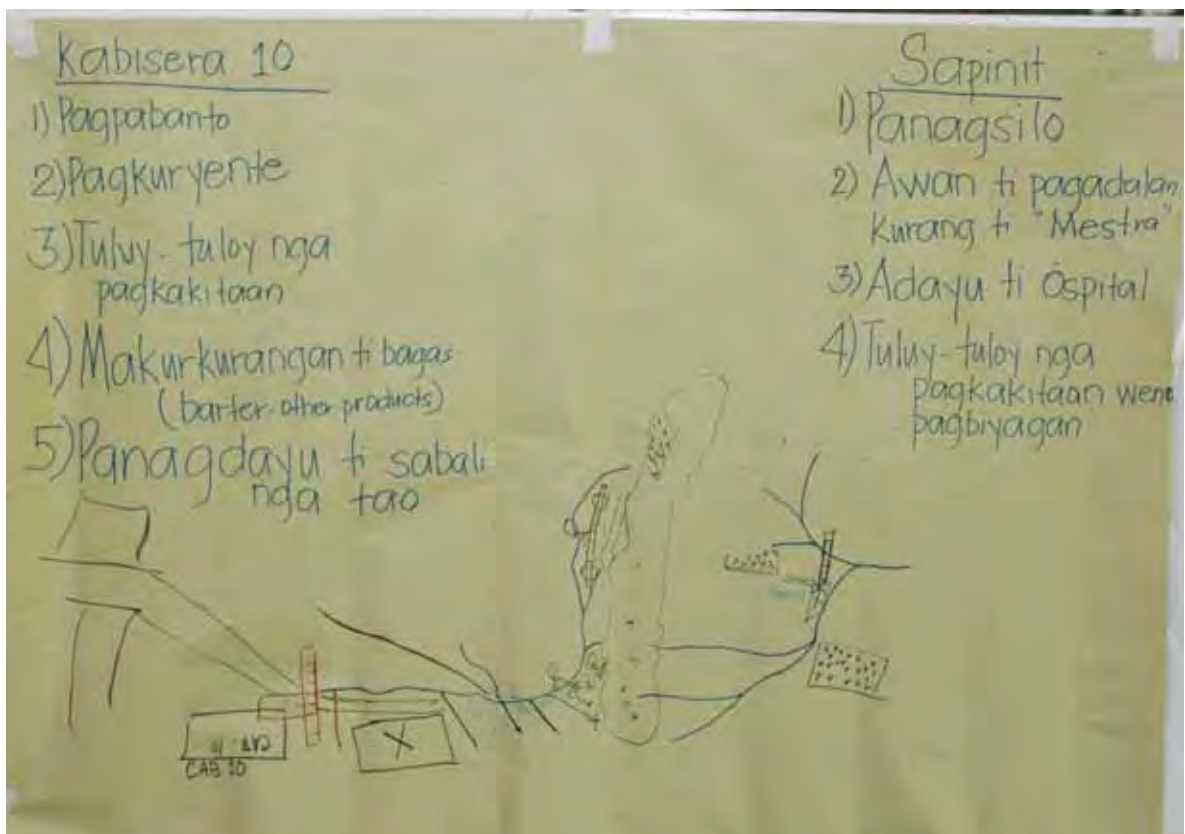 Kabisera 10
1) Pagpabanto
2) Pagkuryente
3) Tuluy-tuloy nga
pagkakitaan
4) Makurkurangan ti bagas
(barter-other products)
5) Panagdayu ti sabali
nga tao
CAB 10
Sapinit
1) Panagsilo
2) Awan ti pagadalan
kurang ti "Mestra"
3) Adayu ti Ospital
4) Tuluy-tuloy nga
pagkakitaan wenn
pagbiyagan